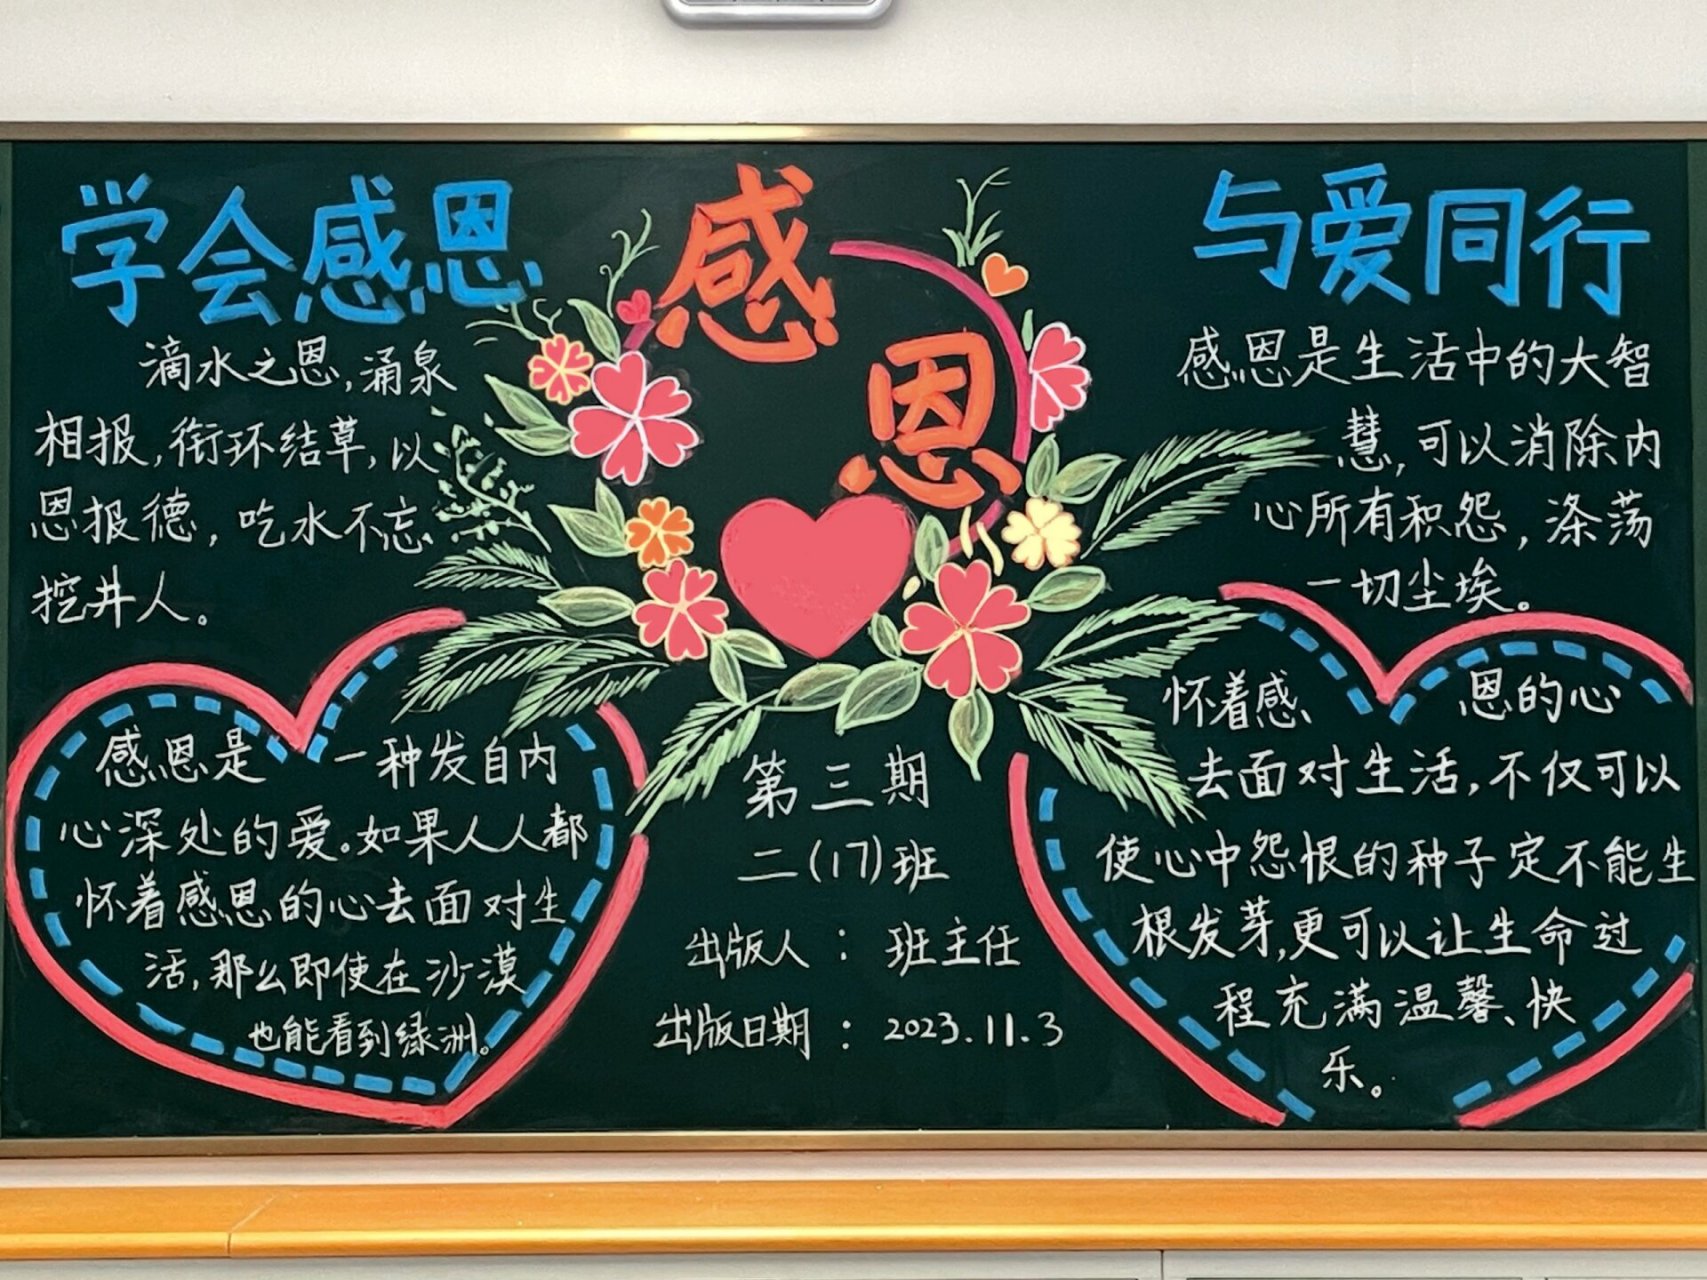 学会感恩
滴水之恩,涌泉
相报,衔环结草,以
恩报德,吃水不忘
挖井人。
感恩是一种发自内
心深处的爱。如果人人都
怀着感恩的心去面对生
活,那么即使在沙漠
也能看到绿洲。
感恩
第三期
二(17)班
出版人:班主任
出版日期:2023.11.3
与爱同行
感恩是生活中的大智
慧,可以消除内
心所有积怨,涤荡
一切尘埃。
怀着感恩的心
去面对生活,不仅可以
使心中怨恨的种子定不能生
根发芽,更可以让生命过
程充满温馨、快
乐。